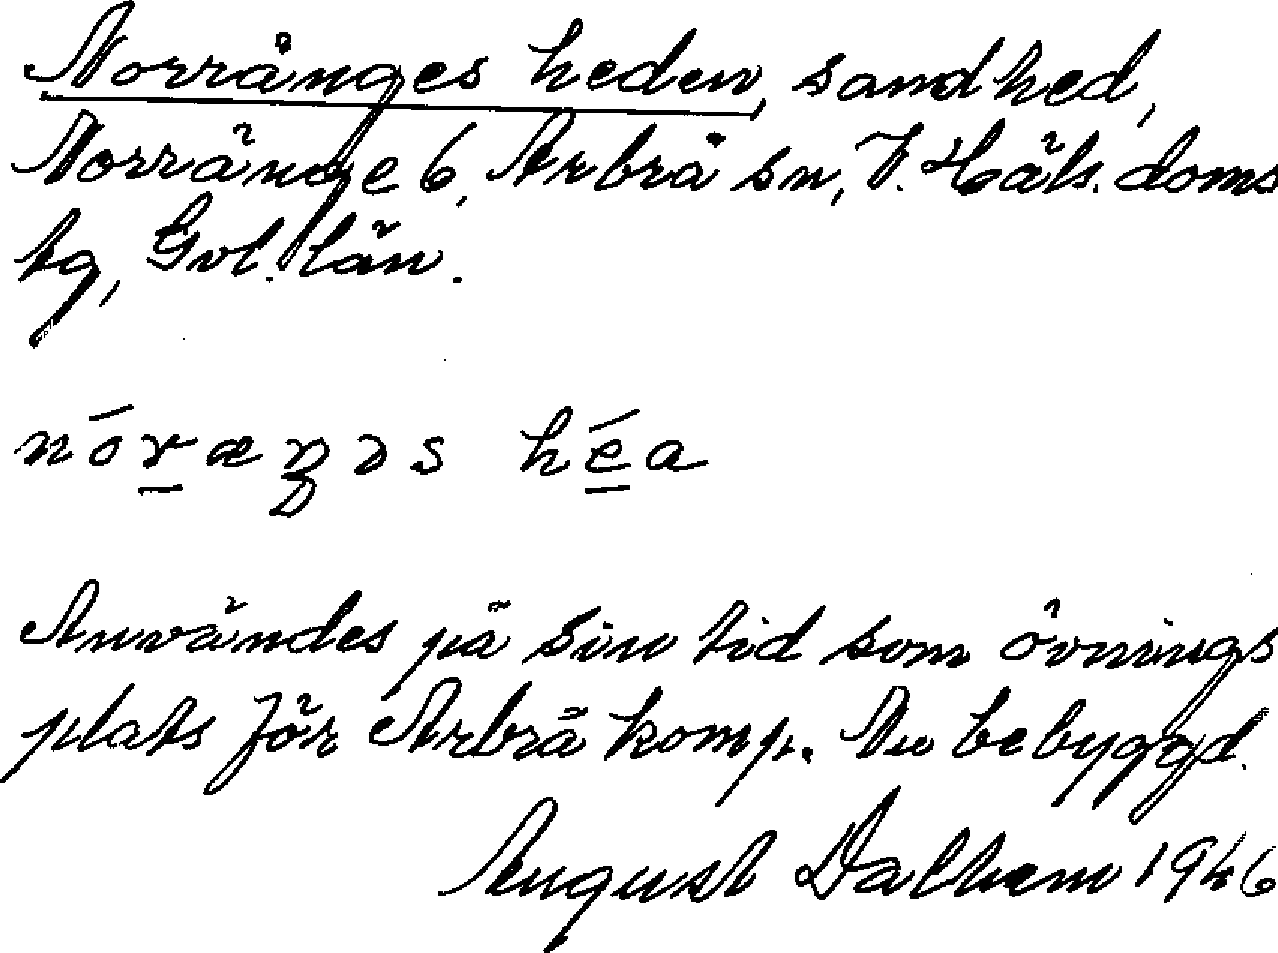 Norränges heden, sandhed,
Norränge 6, Arbrå sn, V. Häls. doms
tg, Gvl. län.
nó̲ræŋəs hé̲a
Användes på sin tid som övnings
plats för Arbrå komp. Nu bebyggd.
August Dalhem 1946